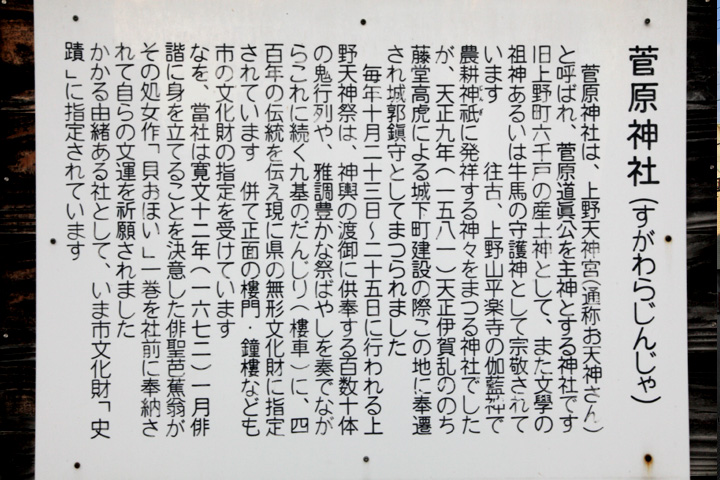 菅原神社(すがわらじんじゃ)
菅原神社は、上野天神宮(通称お天神さん)
と呼ばれ、菅原道眞公を主神とする神社です
旧上野町六千戸の産土神として、また文學の
祖神あるいは牛馬の守護神として宗敬されて
います 往古、上野山平楽寺の伽藍神で
農耕神祇に発祥する神々をまつる神社でした
が、天正九年(一五八一)天正伊賀乱ののち
藤堂高虎による城下町建設の際この地に奉遷
され城郭鎮守としてまつられました
毎年十月二十三日～二十五日に行われる上
野天神祭は、神輿の渡御に供奉する百数十体
の鬼行列や、雅調豊かな祭ばやしを奏でなが
らこれに続く九基のだんじり(樓車)に、四
百年の伝統を伝え現に県の無形文化財に指定
されています 併て正面の樓門・鐘樓なども
市の文化財の指定を受けています
なを、當社は寛文十二年(一六七二)一月俳
諧に身を立てることを決意した俳聖芭蕉翁が
その処女作「貝おほい」一巻を社前に奉納さ
れて自らの文運を祈願されました
かかる由緒ある社として、いま市文化財「史
蹟」に指定されています